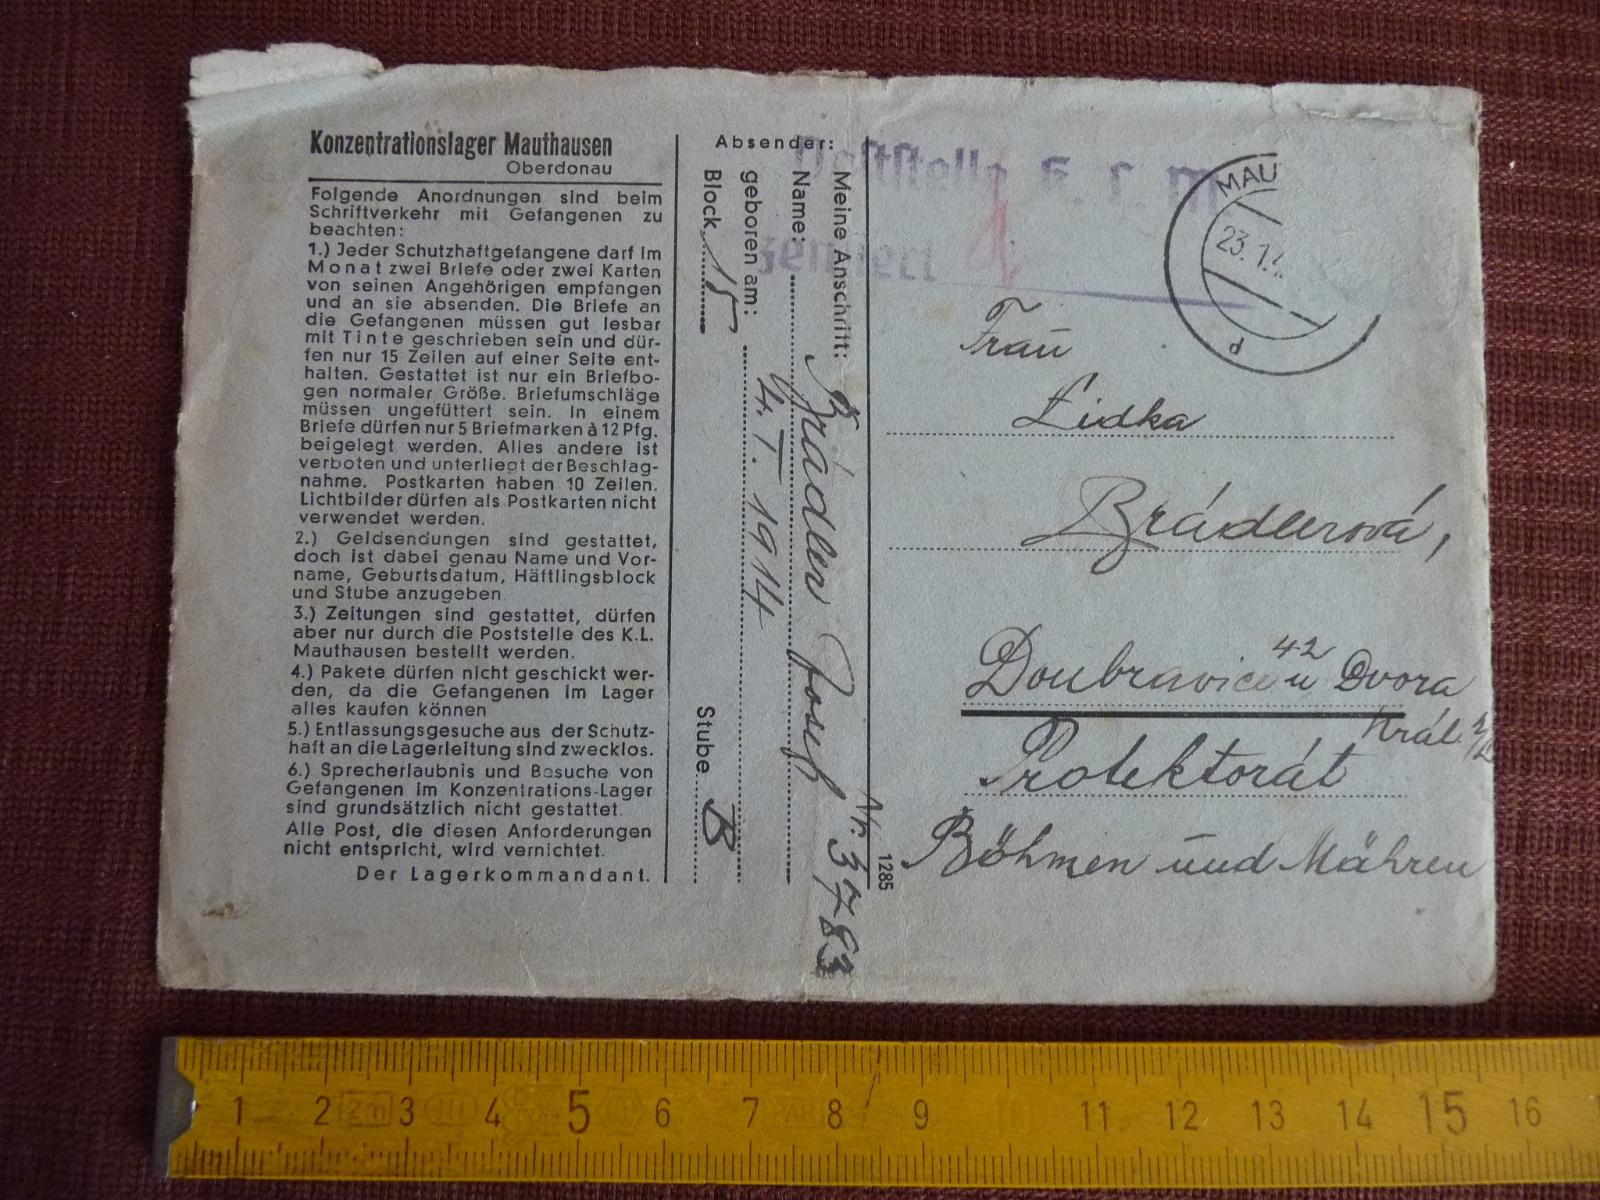 Konzentrationslager Mauthausen
Oberdonau
Folgende Anordnungen sind beim
Schriftverkehr mit Gefangenen zu
beachten:
1.) Jeder Schutzhaftgefangene darf im
Monat zwei Briefe oder zwei Karten
von seinen Angehörigen empfangen
und an sie absenden. Die Briefe an
die Gefangenen müssen gut lesbar
mit Tinte geschrieben sein und dür-
fen nur 15 Zeilen auf einer Seite ent-
halten. Gestattet ist nur ein Briefbo-
gen normaler Größe. Briefumschläge
müssen ungefüttert sein. In einem
Briefe dürfen nur 5 Briefmarken à 12 Pfg.
beigelegt werden. Alles andere ist
verboten und unterliegt der Beschlag-
nahme. Postkarten haben 10 Zeilen.
Lichtbilder dürfen als Postkarten nicht
verwendet werden.
2.) Geldsendungen sind gestattet,
doch ist dabei genau Name und Vor-
name, Geburtsdatum, Häftlingsblock
und Stube anzugeben.
3.) Zeitungen sind gestattet, dürfen
aber nur durch die Poststelle des K.L.
Mauthausen bestellt werden.
4.) Pakete dürfen nicht geschickt wer-
den, da die Gefangenen im Lager
alles kaufen können
5.) Entlassungsgesuche aus der Schutz-
haft an die Lagerleitung sind zwecklos.
6.) Sprecherlaubnis und Besuche von
Gefangenen im Konzentrations-Lager
sind grundsätzlich nicht gestattet.
Alle Post, die diesen Anforderungen
nicht entspricht, wird vernichtet.
Der Lagerkommandant.
Absender:
Meine Anschrift:
Name: Brádler Josef Nr. 3783
geboren am: 4. I. 1914
Block 15 Stube B
1285
Poststelle K. L. M
zensiert
MAU
23.1.4
d
Frau
Lidka
Brádlerová,
Doubravice 42 u Dvora
Král. n/L
Protektorát
Böhmen und Mähren
1 2 3 4 5 6 7 8 9 11 12 13 14 15 16
2m